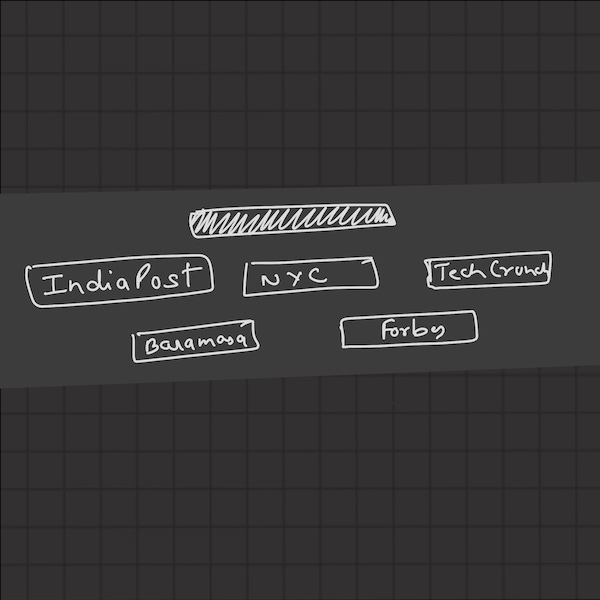 IndiaPost NYC TechCrunch
Baramasa Forbes